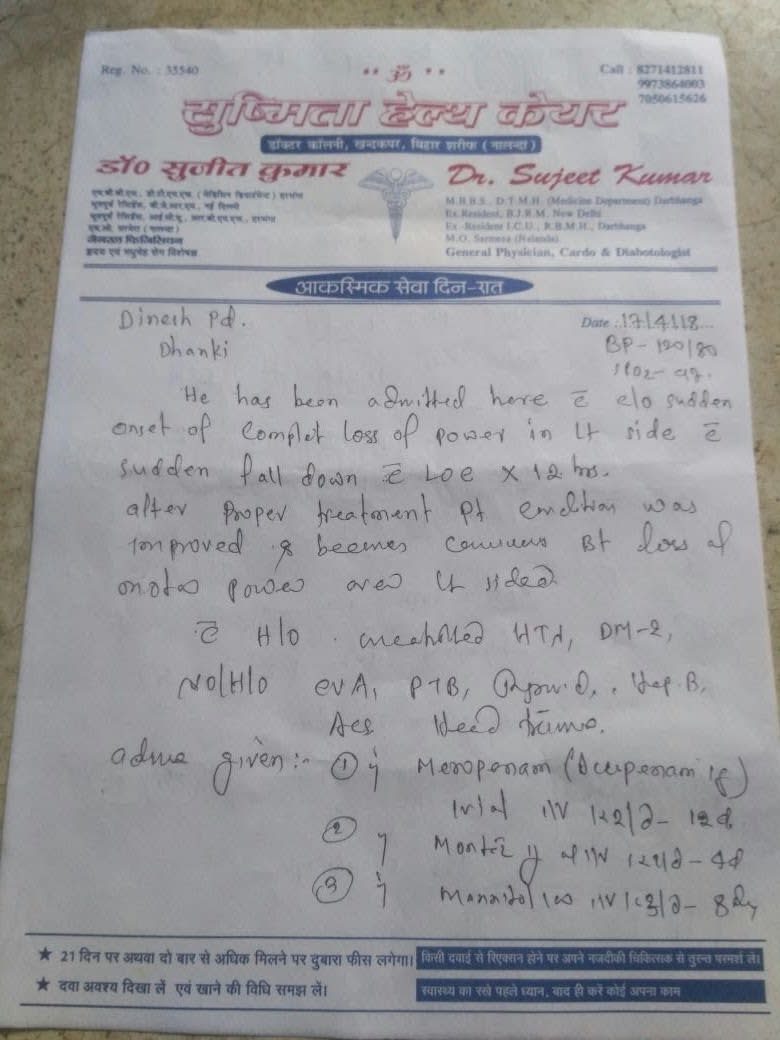 Reg. No. : 35540
Call : 8271412811
9973864003
7050615626
ॐ
सुष्मिता हेल्थ केयर
डॉक्टर कॉलनी, खन्दकपर, बिहार शरीफ (नालन्दा)
डॉ० सुजीत कुमार
एम.बी.बी.एस., डी.टी.एम.एच. (मेडिसिन डिपार्टमेन्ट) दरभंगा
भूतपूर्व रेसिडेंट, बी.जे.आर.एम., नई दिल्ली
भूतपूर्व रेसिडेंट, आई.सी.यू., आर.बी.एम.एच., दरभंगा
एम.ओ. सरमेरा (नालन्दा)
जेनरल फिजिसियन
हृदय एवं मधुमेह रोग विशेषज्ञ
Dr. Sujeet Kumar
M.B.B.S., D.T.M.H. (Medicine Department) Darbhanga
Ex.Resident, B.J.R.M. New Delhi
Ex.-Resident I.C.U., R.B.M.H., Darbhanga
M.O. Sarmera (Nalanda)
General Physician, Cardo & Diabotologist
आकस्मिक सेवा दिन-रात
Dinesh Pd.
Date : 17/4/18
Dhanki
BP - 120/80
SPO2 -
He has been admitted here c̄ c/o sudden
onset of complet loss of power in Lt side c̄
sudden fall down c̄ LOC X 12 hrs.
after proper treatment Pt condition was
improved & becomes Bt loss of
motor power over Lt sided
c̄ H/O HTN, DM-2,
NO/H/O CVA, PTB, Hep. B,
Head
given :- ① Meropenam
1 vial IV 12d
②
③ Mannitol IV
★ 21 दिन पर अथवा दो बार से अधिक मिलने पर दुबारा फीस लगेगा।
किसी दवाई से रिएक्शन होने पर अपने नजदीकी चिकित्सक से तुरन्त परामर्श लें।
★ दवा अवश्य दिखा लें एवं खाने की विधि समझ लें।
स्वास्थ्य का रखे पहले ध्यान, बाद ही करें कोई अपना काम